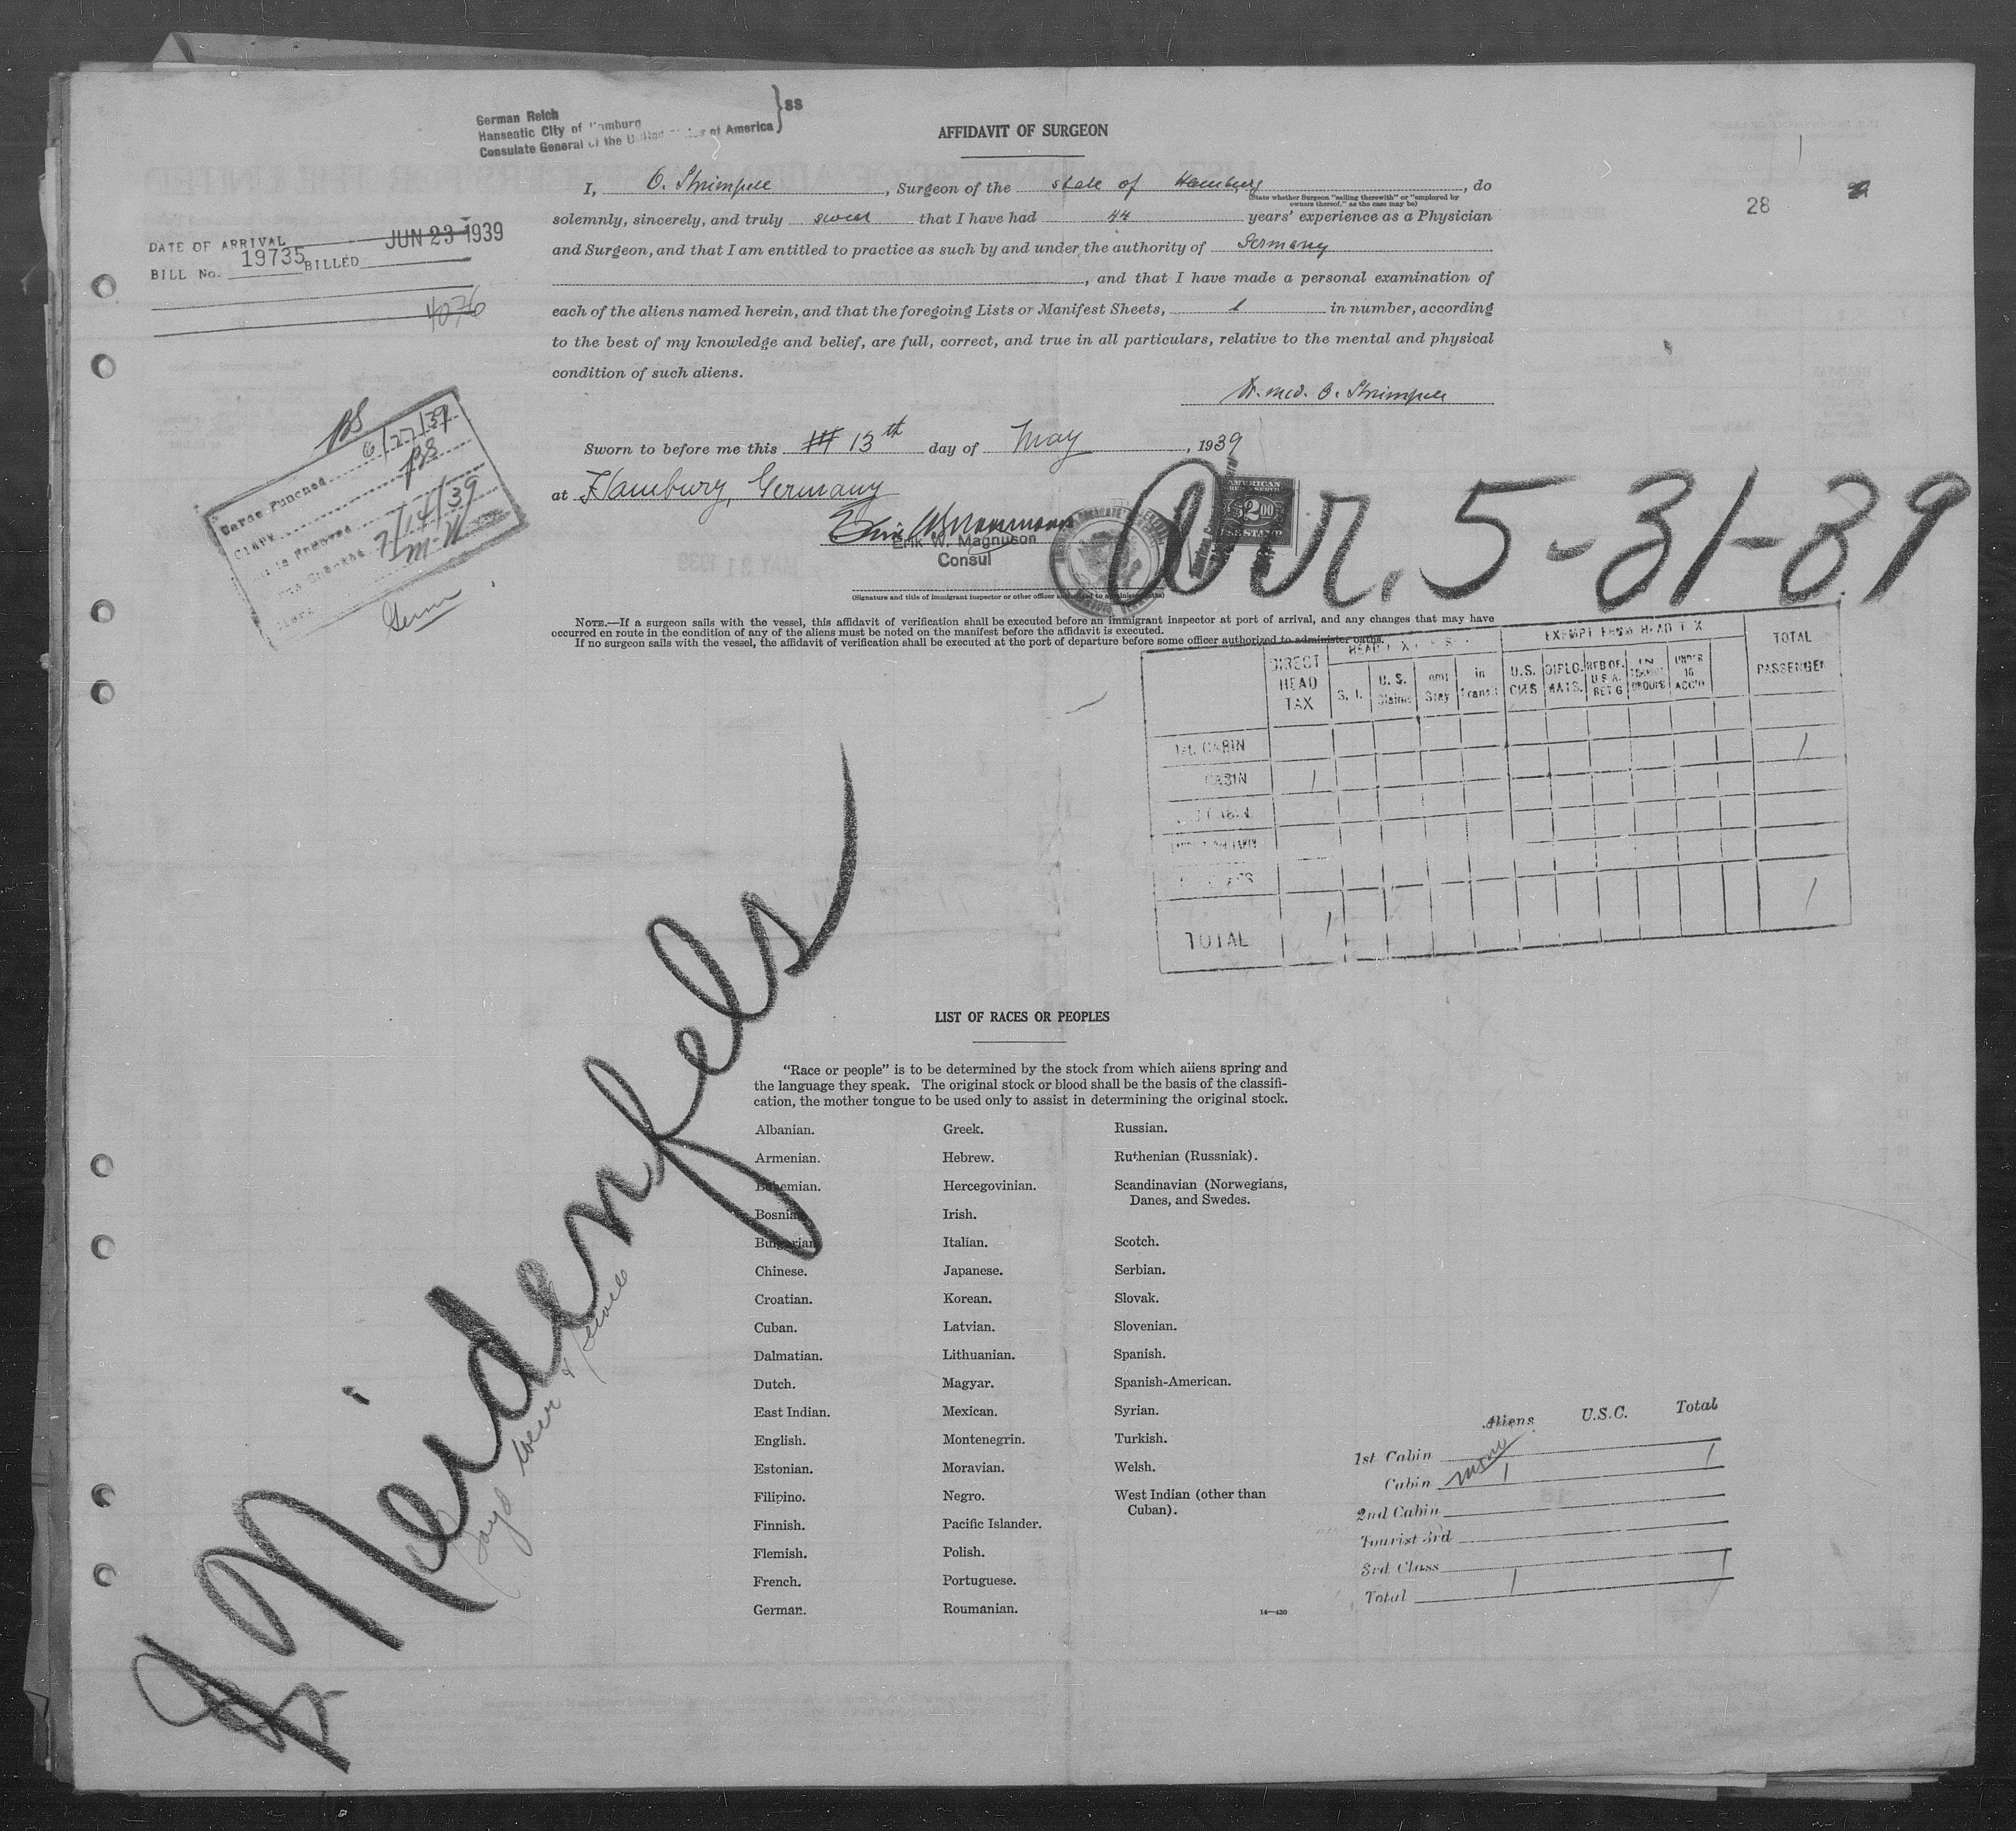 German Reich
Hanseatic City of Hamburg
Consulate General of the United States of America } ss
AFFIDAVIT OF SURGEON
I, O. Strimpell, Surgeon of the state of Hamburg, do
(State whether Surgeon "sailing therewith" or "employed by
owners thereof," as the case may be)
28
solemnly, sincerely, and truly swear that I have had 44 years' experience as a Physician
and Surgeon, and that I am entitled to practice as such by and under the authority of Germany
, and that I have made a personal examination of
each of the aliens named herein, and that the foregoing Lists or Manifest Sheets, 1 in number, according
to the best of my knowledge and belief, are full, correct, and true in all particulars, relative to the mental and physical
condition of such aliens.
Dr. med. O. Strimpell
DATE OF ARRIVAL JUN 23 1939
BILL No. 19735 BILLED
4076
BS
Cards Punched 6/27/39
Clerk BS
7/14/39
M-W
Sworn to before me this 13th day of May, 1939
at Hamburg, Germany
Erik W. Magnuson
Consul
AMERICAN
$2.00
FEE STAMP
Arr. 5-31-39
(Signature and title of immigrant inspector or other officer authorized to administer oaths)
NOTE.—If a surgeon sails with the vessel, this affidavit of verification shall be executed before an immigrant inspector at port of arrival, and any changes that may have
occurred en route in the condition of any of the aliens must be noted on the manifest before the affidavit is executed.
If no surgeon sails with the vessel, the affidavit of verification shall be executed at the port of departure before some officer authorized to administer oaths.
EXEMPT FROM HEAD TAX
DIRECT HEAD TAX S. I. U. S. Claims Stay in Transit U.S. CITS DIPLO. MATS. UNDER 16 ACC'D TOTAL PASSENGER
1st. CABIN 1
CABIN 1
TOTAL 1 1
Neidenfels
LIST OF RACES OR PEOPLES
"Race or people" is to be determined by the stock from which aliens spring and
the language they speak. The original stock or blood shall be the basis of the classifi-
cation, the mother tongue to be used only to assist in determining the original stock.
Albanian.
Armenian.
Bohemian.
Bosnian.
Bulgarian.
Chinese.
Croatian.
Cuban.
Dalmatian.
Dutch.
East Indian.
English.
Estonian.
Filipino.
Finnish.
Flemish.
French.
German.
Greek.
Hebrew.
Hercegovinian.
Irish.
Italian.
Japanese.
Korean.
Latvian.
Lithuanian.
Magyar.
Mexican.
Montenegrin.
Moravian.
Negro.
Pacific Islander.
Polish.
Portuguese.
Roumanian.
Russian.
Ruthenian (Russniak).
Scandinavian (Norwegians,
Danes, and Swedes.
Scotch.
Serbian.
Slovak.
Slovenian.
Spanish.
Spanish-American.
Syrian.
Turkish.
Welsh.
West Indian (other than
Cuban).
14—430
Aliens U.S.C. Total
1st Cabin 1
Cabin 1
2nd Cabin
Tourist 3rd
3rd Class 1
Total 1